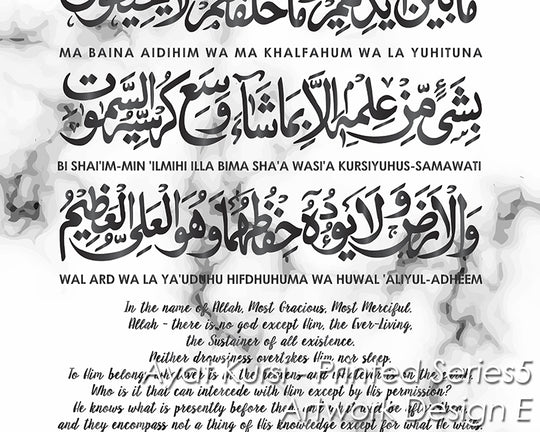 ما بين أيديهم وما خلفهم ولا يحيطون
MA BAINA AIDIHIM WA MA KHALFAHUM WA LA YUHITUNA
بِشَيْءٍ مِّنْ عِلْمِهِ إِلَّا بِمَا شَاءَ وَسِعَ كُرْسِيُّهُ السَّمَوَاتِ
BI SHAI'IM-MIN 'ILMIHI ILLA BIMA SHA'A WASI'A KURSIYUHUS-SAMAWATI
وَالْأَرْضَ وَلَا يَؤُدُهُ حِفْظُهُمَا وَهُوَ الْعَلِيُّ الْعَظِيمُ
WAL ARD WA LA YA'UDUHU HIFDHUHUMA WA HUWAL 'ALIYUL-ADHEEM
In the name of Allah, Most Gracious, Most Merciful.
Allah - there is no god except Him, the Ever-Living,
the Sustainer of all existence.
Neither drowsiness overtakes Him nor sleep.
To Him belongs whatever is in the heavens and whatever is on the earth.
Who is it that can intercede with Him except by His permission?
He knows what is presently before them and
and they encompass not a thing of His knowledge except for what He wills.
Ayat Kursi - Printed Series5
Artwork Design E